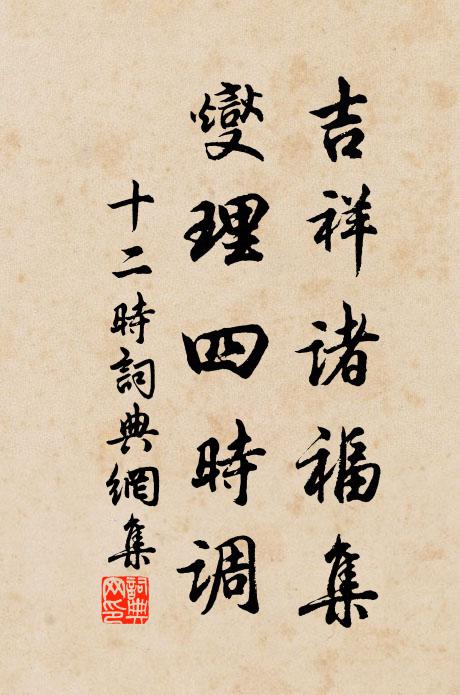 吉祥诸福集
燮理四時调
十二時詞典網集
詞典
网印